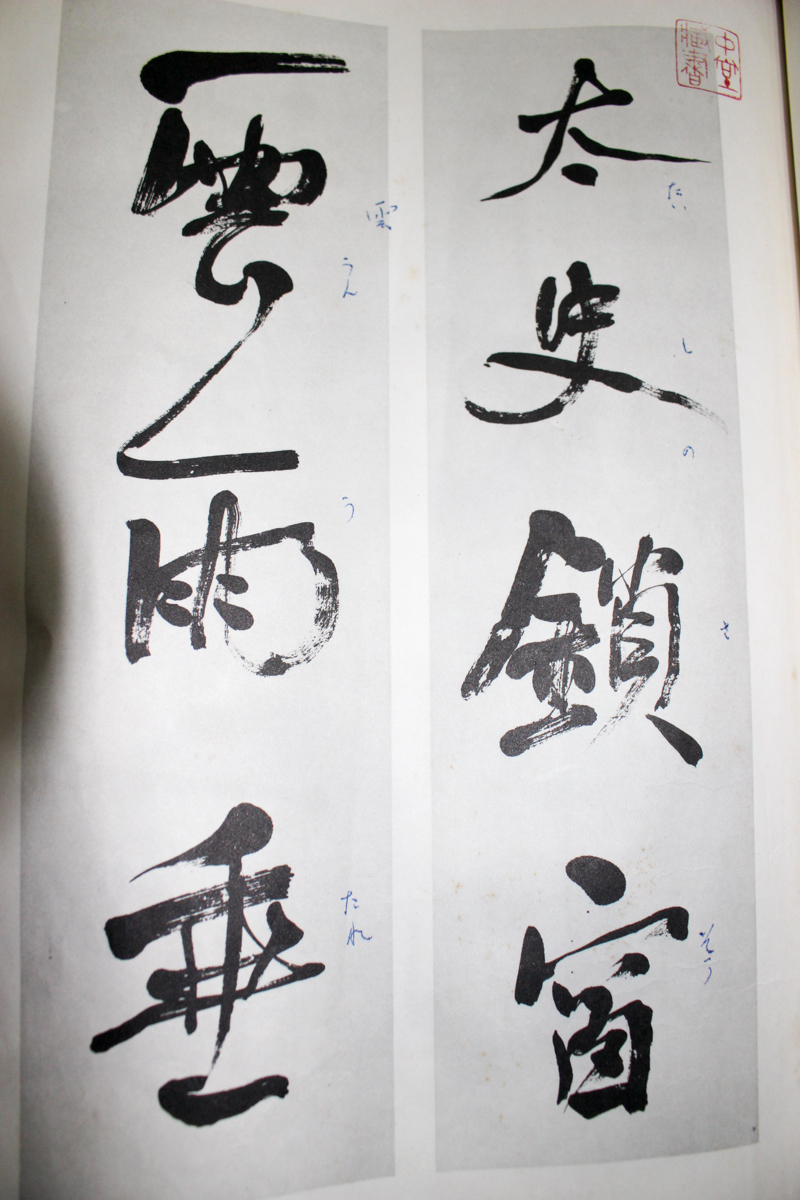 太史鎖窗
たい
し
の
さ
そう
雲雨垂
雲
うん
う
たれ
中堂